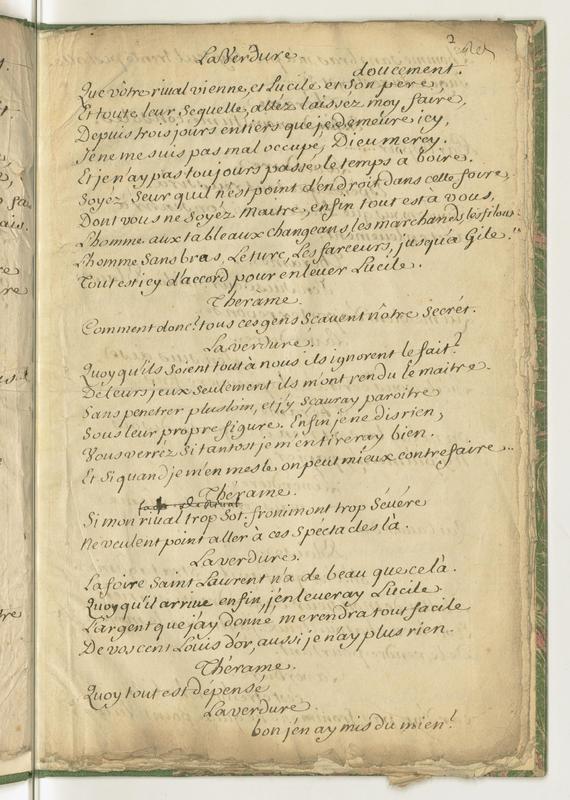 LaVerdure.
doucement.
Que vôtre riual vienne, et Lucile et Son pere
Et toute leur Sequelle, alléz laissez moy faire,
Depuis trois jours entiers que je demeure icy,
Je ne me suis pas mal occupé, Dieu mercy.
Et je n'ay pas toujours passé le temps à boire.
Soyéz Seur qu'il n'est point d'endroit dans cette foire,
Dont vous ne Soyéz Maitre, enfin tout est à vous,
L'homme aux tableaux changeans, les marchands, les filous
L'homme Sans bras, Le turc, Les farceurs, jusqu'a Gile.
Tout est icy d'accord pour enleuer Lucile.
Thérame.
Comment donc? tous ces gens Scauent nôtre Secret.
Laverdure.
Quoy qu'ils Soient tout à nous ils ignorent le fait?
De leurs jeux Seulement ils m'ont rendu le maitre.
Sans penetrer plus loin, et j'y Scauray paroitre
Sous leur propre figure. Enfin je ne dis rien,
Vous verréz Si tantost je m'en tireray bien.
Et Si quand je m'en mesle on peut mieux contrefaire...
Thérame.
Si mon riual trop Sot. fronimont trop Séuére
Ne veulent point aller à ces Spéctacles là.
Laverdure.
La foire Saint Laurent n'a de beau que celà.
Quoy qu'il arriue enfin, j'enleueray Lucile
L'argent que j'ay donné me rendra tout facile
De vos cent Louis d'or, aussi je n'ay plus rien.
Thérame.
Quoy tout est dépensé
Laverdure.
bon j'en ay mis du mien?